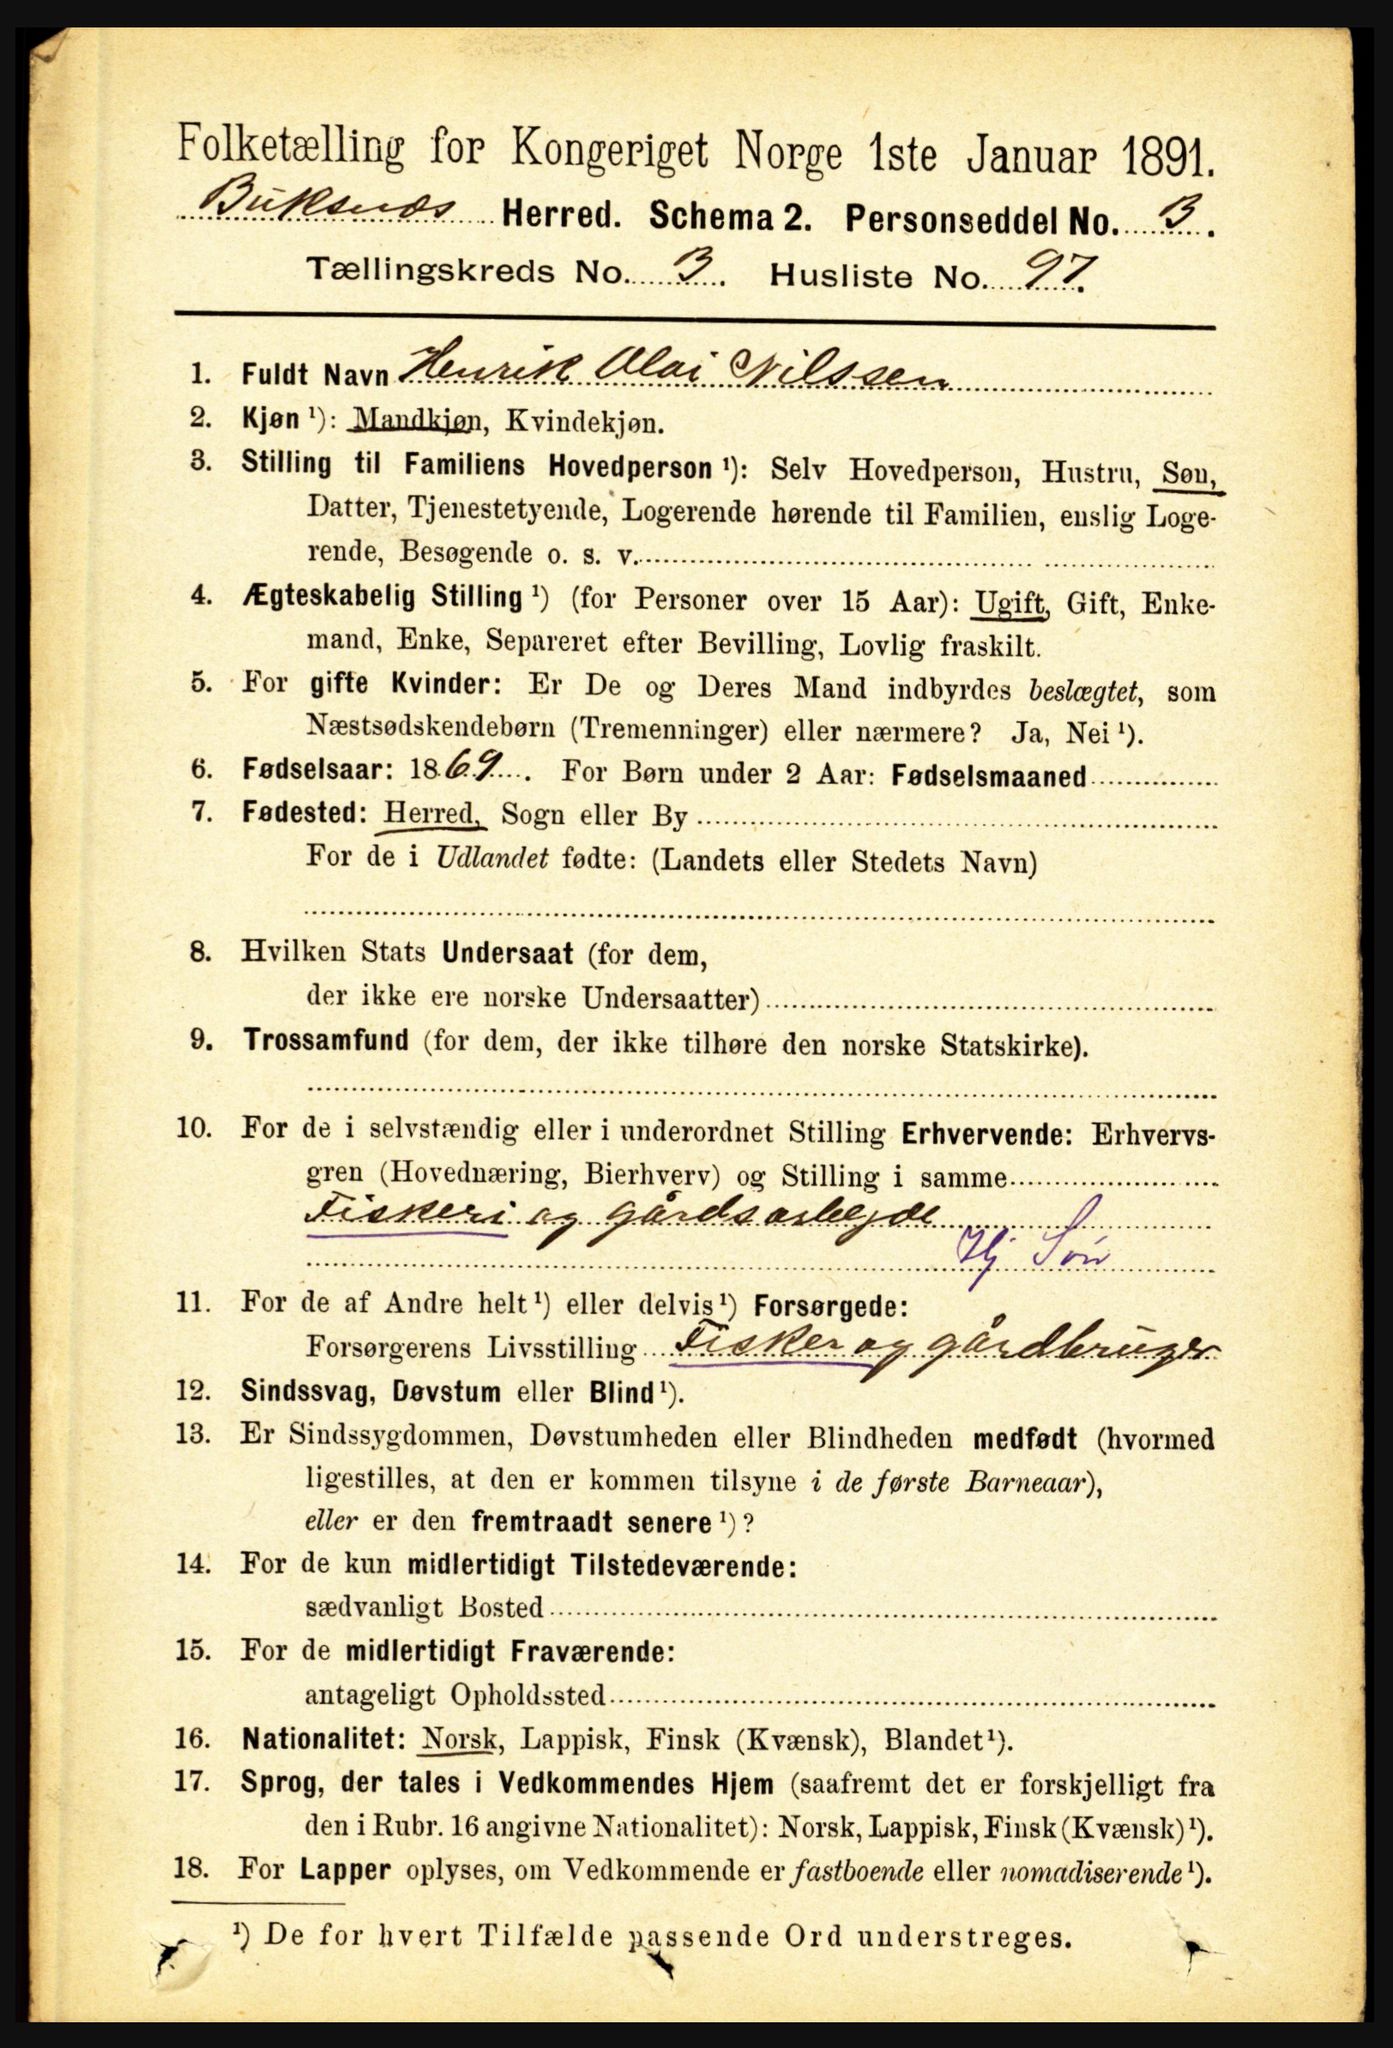 Folketælling for Kongeriget Norge 1ste Januar 1891.
Buksnæs Herred. Schema 2. Personseddel No. 3.
Tællingskreds No. 3. Husliste No. 97.
1. Fuldt Navn Henrik Olai Nilssen
2. Kjøn ¹): Mandkjøn, Kvindekjøn.
3. Stilling til Familiens Hovedperson ¹): Selv Hovedperson, Hustru, Søn,
Datter, Tjenestetyende, Logerende hørende til Familien, enslig Loge-
rende, Besøgende o. s. v.
4. Ægteskabelig Stilling ¹) (for Personer over 15 Aar): Ugift, Gift, Enke-
mand, Enke, Separeret efter Bevilling, Lovlig fraskilt.
5. For gifte Kvinder: Er De og Deres Mand indbyrdes beslægtet, som
Næstsødskendebørn (Tremenninger) eller nærmere? Ja, Nei ¹).
6. Fødselsaar: 1869. For Børn under 2 Aar: Fødselsmaaned
7. Fødested: Herred, Sogn eller By
For de i Udlandet fødte: (Landets eller Stedets Navn)
8. Hvilken Stats Undersaat (for dem,
der ikke ere norske Undersaatter)
9. Trossamfund (for dem, der ikke tilhøre den norske Statskirke).
10. For de i selvstændig eller i underordnet Stilling Erhvervende: Erhvervs-
gren (Hovednæring, Bierhverv) og Stilling i samme
Fiskeri og gårdsarbejde
Hj Søn
11. For de af Andre helt ¹) eller delvis ¹) Forsørgede:
Forsørgerens Livsstilling Fisker og gårdbruger
12. Sindssvag, Døvstum eller Blind ¹).
13. Er Sindssygdommen, Døvstumheden eller Blindheden medfødt (hvormed
ligestilles, at den er kommen tilsyne i de første Barneaar),
eller er den fremtraadt senere ¹)?
14. For de kun midlertidigt Tilstedeværende:
sædvanligt Bosted
15. For de midlertidigt Fraværende:
antageligt Opholdssted
16. Nationalitet: Norsk, Lappisk, Finsk (Kvænsk), Blandet ¹).
17. Sprog, der tales i Vedkommendes Hjem (saafremt det er forskjelligt fra
den i Rubr. 16 angivne Nationalitet): Norsk, Lappisk, Finsk (Kvænsk) ¹).
18. For Lapper oplyses, om Vedkommende er fastboende eller nomadiserende ¹).
¹) De for hvert Tilfælde passende Ord understreges.